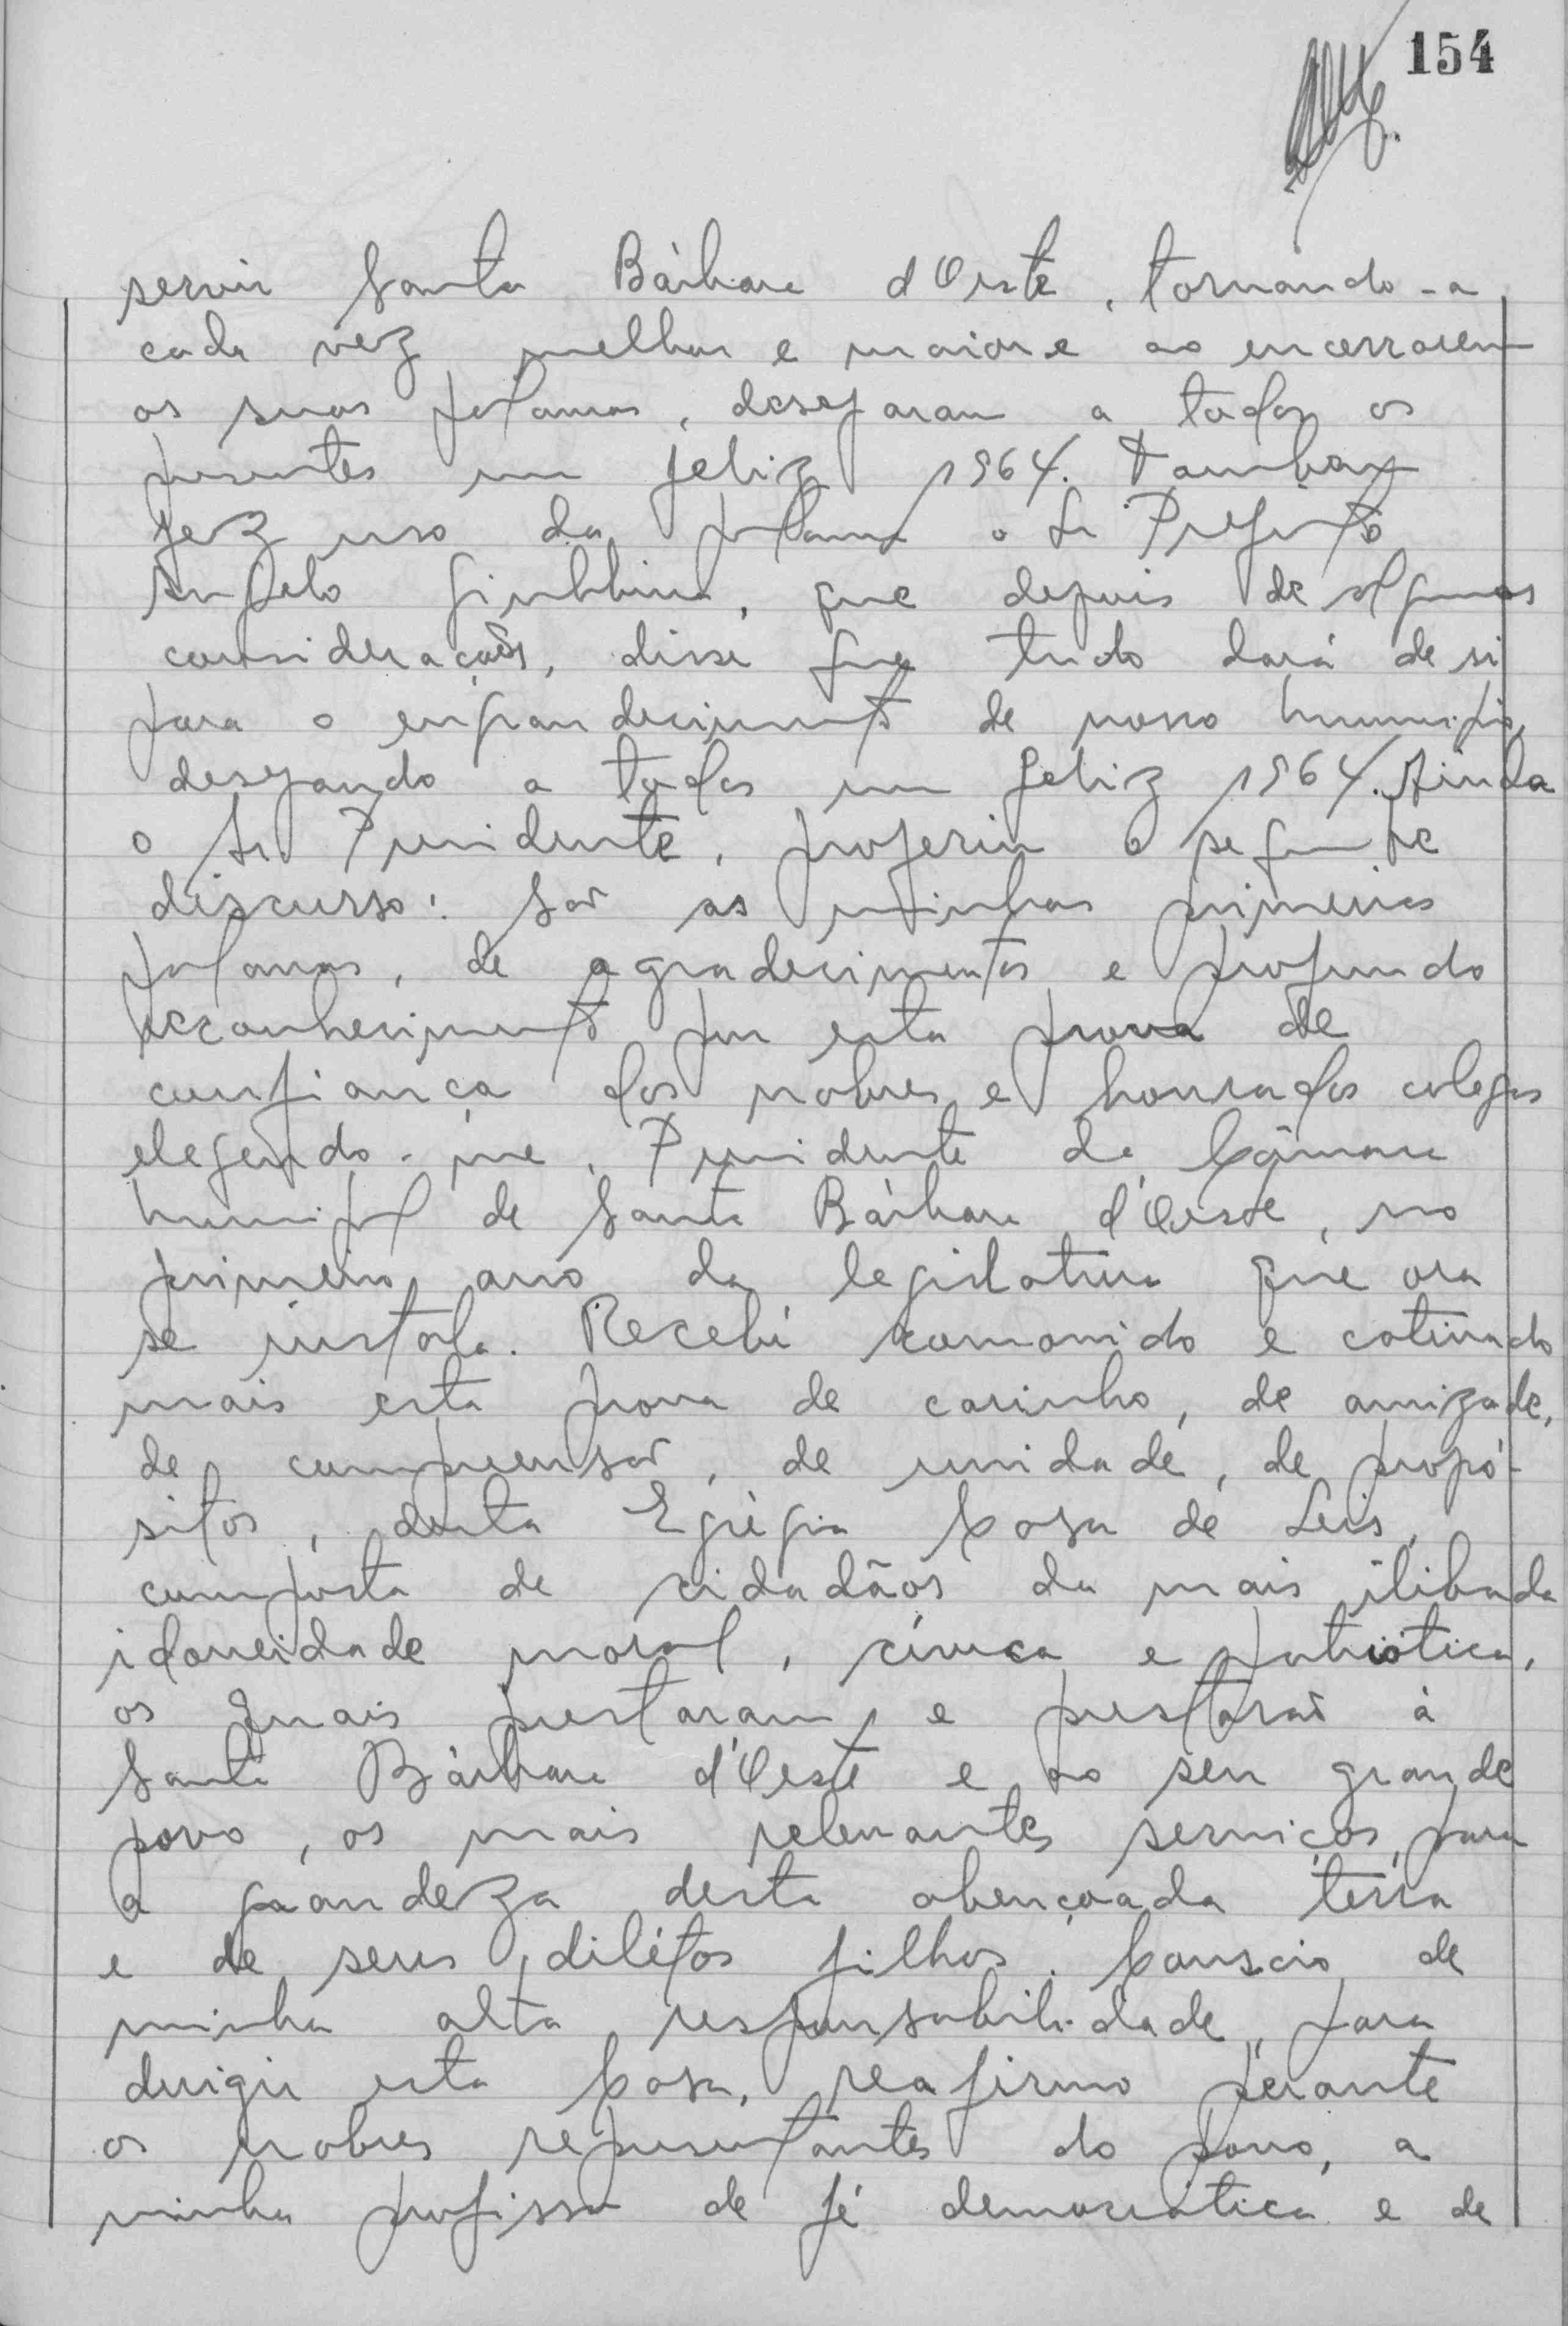 154
servir Santa Bárbara d'Oeste, tornando-a
cada vez melhor e maior e ao encerrarem
as suas palavras, desejaram a todos os
presentes um feliz 1964. Tambem
fez uso da palavra o Sr. Prefeito
Angelo Giubbina, que depois de algumas
considerações, disse que tudo dará de si
para o engrandecimento de nosso municipio,
desejando a todos um feliz 1964. Ainda
o Sr. Presidente, proferiu o seguinte
discurso: São as minhas primeiras
palavras, de agradecimentos e profundo
reconhecimento por esta prova de
confiança dos nobres e honrados colegas
elegendo-me, Presidente da Câmara
Municipal de Santa Bárbara d'Oeste, no
primeiro ano da legislatura que ora
se instala. Recebí comovido e cativado
mais esta prova de carinho, de amizade,
de compreensão, de unidade, de propó-
sitos, desta Egrégia Casa de Leis,
composta de cidadãos da mais ilibada
idoneidade moral, cívica e patriótica,
os quais prestaram e prestarão à
Santa Bárbara d'Oeste e ao seu grande
povo, os mais relevantes serviços, para
a grandeza desta abençoada terra
e de seus diletos filhos. Conscio de
minha alta responsabilidade, para
dirigir esta Casa, reafirmo perante
os nobres representantes do povo, a
minha profissão de fé democrática e de